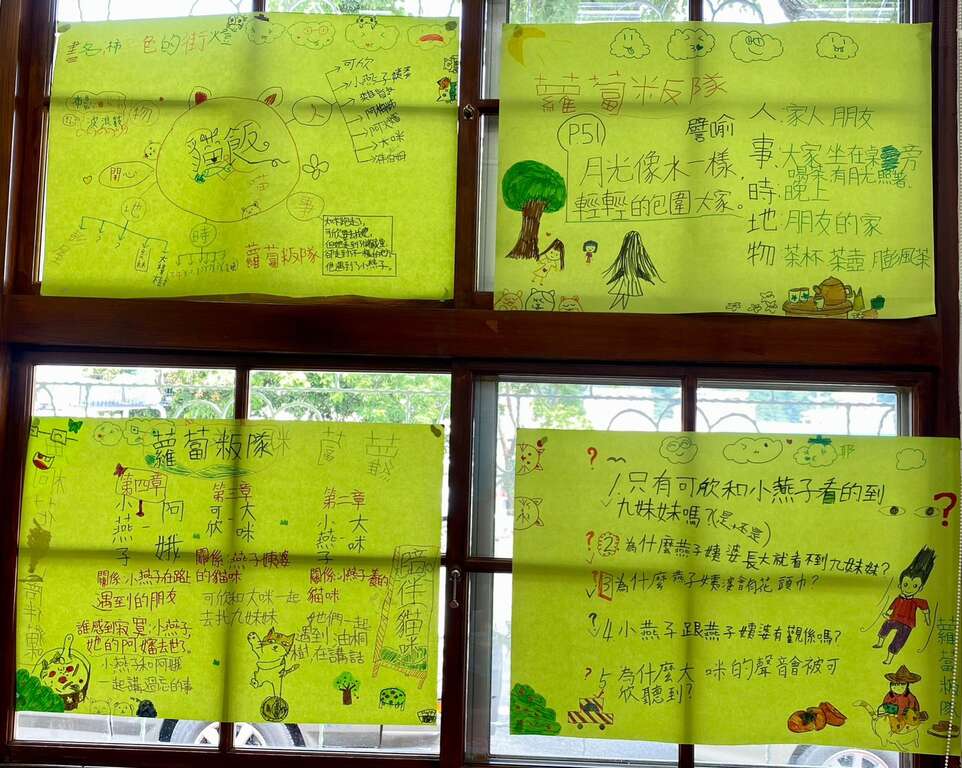 書名:柿色的街燈
貓飯
人
可欣
小燕子姨婆
大咪
物
開心
地
時
事
蘿蔔粄隊
蘿蔔粄隊
P.51
譬喻
月光像水一樣,
輕輕的包圍大家。
人:家人朋友
事:大家坐在桌旁
喝茶有月光照著
時:晚上
地:朋友的家
物 茶杯 茶壺 膨風茶
蘿蔔粄隊
第四章
小燕子-阿娥
關係:小燕子在路上
遇到的朋友
誰感到寂寞:小燕子,
她的阿嬤去世了。
小燕子和阿娥
一起講過忘的事
第三章
可欣-大咪
關係:燕子姨婆
的貓咪
可欣和大咪一起
去找九妹妹
第二章
小燕子-大咪
關係:小燕子養的
貓咪
她們一起
遇到油桐
樹,在講話
陪伴貓咪
1.只有可欣和小燕子看的到
九妹妹嗎?(是、不是)
2.為什麼燕子姨婆長大就看不到九妹妹?
3.為什麼燕子姨婆會包花頭巾?
4.小燕子跟燕子姨婆有關係嗎?
5.為什麼大咪的聲音會被可
欣聽到?
蘿蔔粄隊